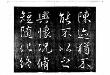 陳迹猶不
能不以之
興懷況脩
短隨化終